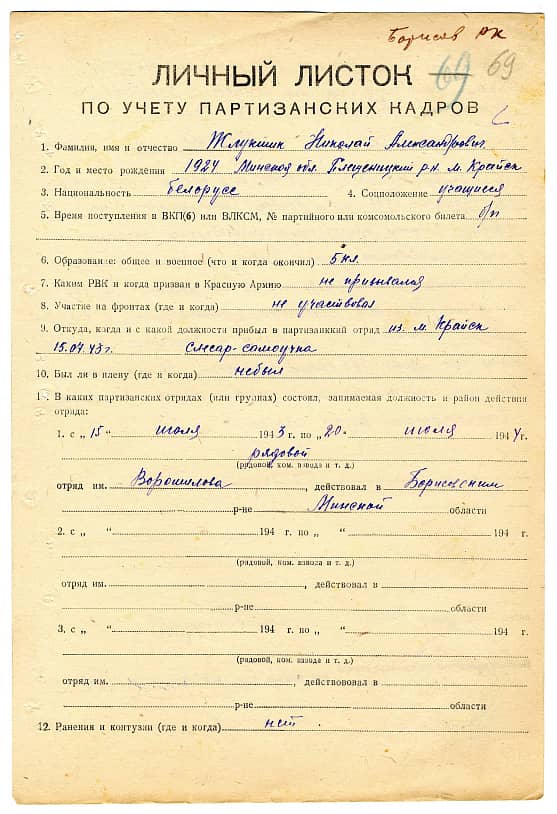 Борисов РК
69 69
ЛИЧНЫЙ ЛИСТОК
ПО УЧЕТУ ПАРТИЗАНСКИХ КАДРОВ
1. Фамилия, имя и отчество Жлукшик Николай Александрович
2. Год и место рождения 1927 Минской обл. Плещеницкий р-н м. Крайск
3. Национальность белорусс 4. Соцположение учащийся
5. Время поступления в ВКП(б) или ВЛКСМ, № партийного или комсомольского билета б/п
6. Образование: общее и военное (что и когда окончил) 5 кл.
7. Каким РВК и когда призван в Красную Армию не призывался
8. Участие на фронтах (где и когда) не участвовал
9. Откуда, когда и с какой должности прибыл в партизанкий отряд из м. Крайск
15.07.43 г. слесар-самоучка
10. Был ли в плену (где и когда) небыл
1 . В каких партизанских отрядах (или группах) состоял, занимаемая должность и район действия
отряда:
1. с „ 15 “ июля 1943 г. по „ 20. июля 1944 г.
рядовой
(рядовой, ком. взвода и т. д.)
отряд им. Ворошилова, действовал в Борисовским
р-не Минской области
2. с „ “ 194 г. по „ “ 194 г.
(рядовой, ком. взвода и т. д.)
отряд им. , действовал в
р-не области
3. с „ “ 194 г. по „ “ 194 г.
(рядовой, ком. взвода и т. д.)
отряд им. , действовал в
р-не области
12. Ранения и контузии (где и когда) нет.